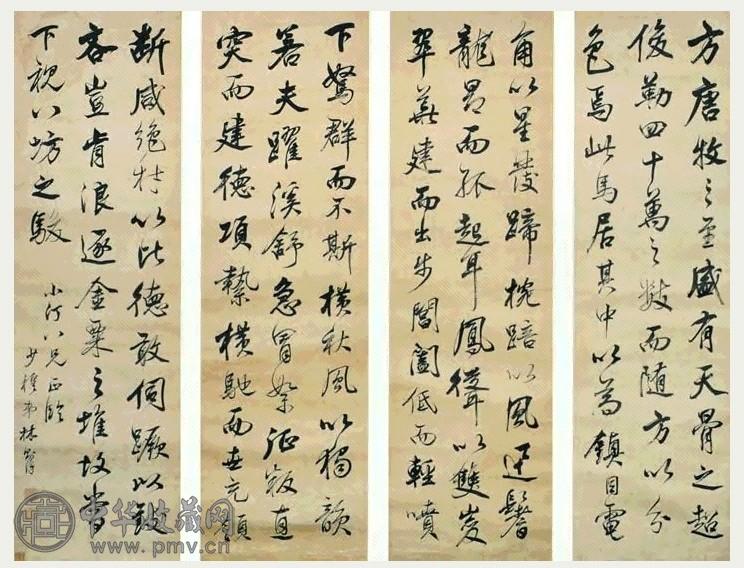 方唐牧之至盛有天骨之超
俊勒四十萬之數而随方以分
色焉此馬居其中以為鎮目電
角以星發蹄椀踣以風逆鬐
龍顒而孤起耳鳳聳以雙峻
翠華建而出步閶闔低而輕噴
下駑群而不斯橫秋風以獨韻
若夫躍溪舒急冒絮征叛直
突而建德項縶橫馳而世充領
斷咸絶材以比德敢伺蹶以致
吝豈肯浪逐金粟之堆故當
下視八坊之駿
小汀八兄正臨
少穆弟林
中华收藏网
www.pmv.cn